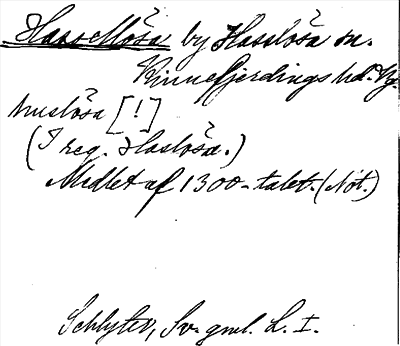 Hasslösa by Hasslösa sn.
Kinnefjerdings hd. Vg.
huslösa [!]
(I reg. Haslösa.)
Midlet af 1300-talet. (Not.)
Schlyter, Sv. gml. L. I.